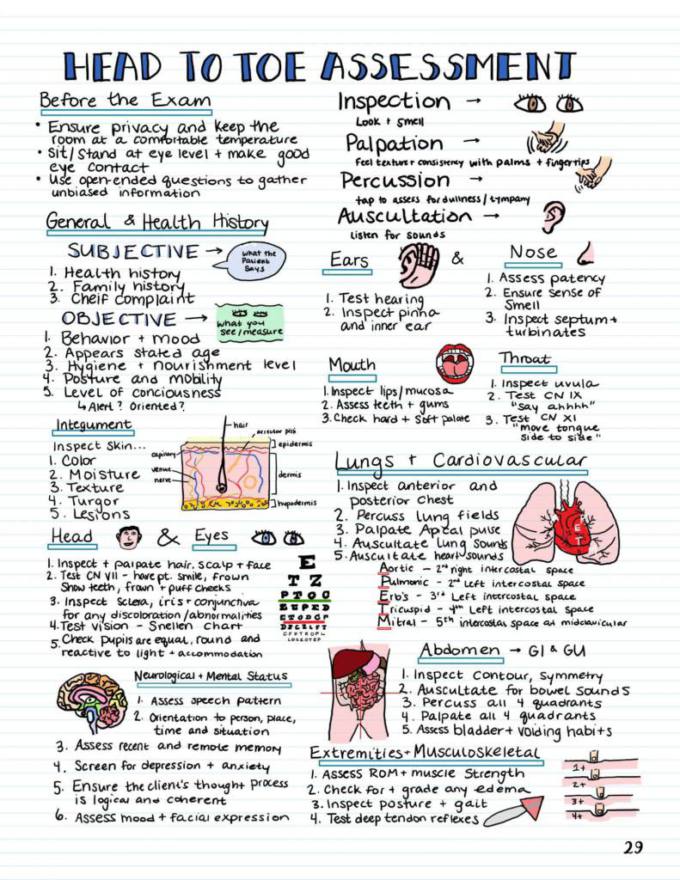 HEAD TO TOE ASSESSMENT
Before the Exam
• Ensure privacy and keep the
room at a comfortable temperature
• Sit/Stand at eye level + make good
eye contact
• Use open-ended questions to gather
unbiased information
Inspection →
Look + Smell
Palpation →
Feel texture + consistency with palms + fingertips
Percussion →
tap to assess for dullness/tympany
Auscultation →
listen for sounds
General & Health History
SUBJECTIVE →
what the
Patient
Says
1. Health history
2. Family history
3. Cheif complaint
OBJECTIVE →
what you
see/measure
1. Behavior + mood
2. Appears stated age
3. Hygiene + nourishment level
4. Posture and mobility
5. Level of conciousness
↳ Alert? Oriented?
Ears
&
Nose
1. Test hearing
2. Inspect pinna
and inner ear
1. Assess patency
2. Ensure sense of
Smell
3. Inspect septum +
turbinates
Mouth
1. Inspect lips/mucosa
2. Assess teeth + gums
3. Check hard + Soft palate
Throat
1. Inspect uvula
2. Test CN IX
"say ahhhh"
3. Test CN XI
"move tongue
side to side"
Integument
Inspect Skin...
1. Color
2. Moisture
3. Texture
4. Turgor
5. Lesions
hair
epidermis
capillary
venue
nerve
dermis
hypodermis
Lungs + Cardiovascular
1. Inspect anterior and
posterior Chest
2. Percuss lung fields
3. Palpate Apical pulse
4. Auscultate Lung Sounds
5. Auscultate heart sounds
Aortic - 2nd right intercostal space
Pulmonic - 2nd Left intercostal space
Erb's - 3rd Left intercostal space
Tricuspid - 4th Left intercostal space
Mitral - 5th intercostal space at midclavicular
Head & Eyes
1. Inspect + palpate hair, scalp + face
2. Test CN VII - have pt. smile, frown
Show teeth, frown + puff cheeks
3. Inspect Sclera, iris + conjunctiva
for any discoloration/abnormalities
4. Test vision - Snellen chart
5. Check pupils are equal, round and
reactive to light + accommodation
E
T Z
Neurological + Mental Status
1. Assess speech pattern
2. Orientation to person, place,
time and situation
3. Assess recent and remote memory
4. Screen for depression + anxiety
5. Ensure the client's thought process
is logical and coherent
6. Assess mood + facial expression
Abdomen → GI & GU
1. Inspect contour, symmetry
2. Auscultate for bowel sounds
3. Percuss all 4 quadrants
4. Palpate all 4 quadrants
5. Assess bladder + voiding habits
Extremities + Musculoskeletal
1. Assess ROM + muscle Strength
2. Check for + grade any edema
3. Inspect posture + gait
4. Test deep tendon reflexes
1+
2+
3+
4+
29